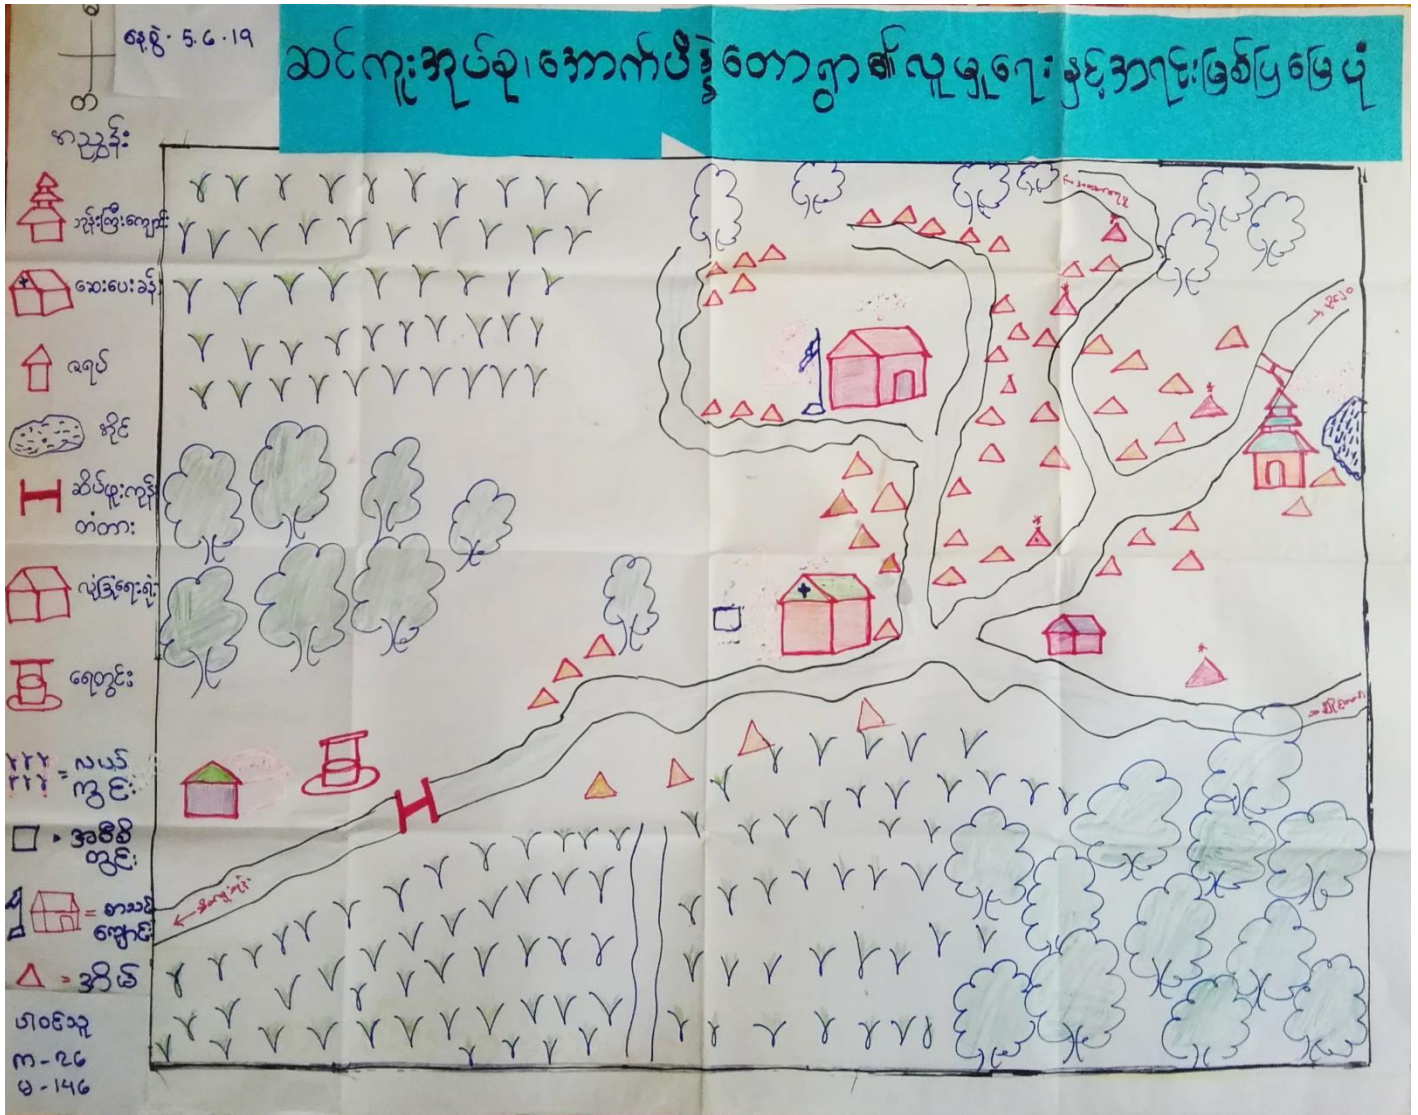 မ
နေ့စွဲ - 5.6.19
ဆင်ကူးအုပ်စု၊ အောက်ပိဒ္ဒဲတောရွာ၏လူမှုရေးနှင့်အရင်းမြစ်ပြမြေပုံ
တ
မာညွှန်း
ဘုန်းကြီးကျောင်း
ဆေးပေးခန်း
ဇရပ်
အိုင်
ဆိပ်ဖူးကုန်း
တံတား
လုံခြုံရေးရုံး
ရေတွင်း
= လယ်
ကွင်း
= အဝီစိ
တွင်း
= စာသင်
ကျောင်း
= အိမ်
ပါဝင်သူ
ကျ - 26
မ - 146